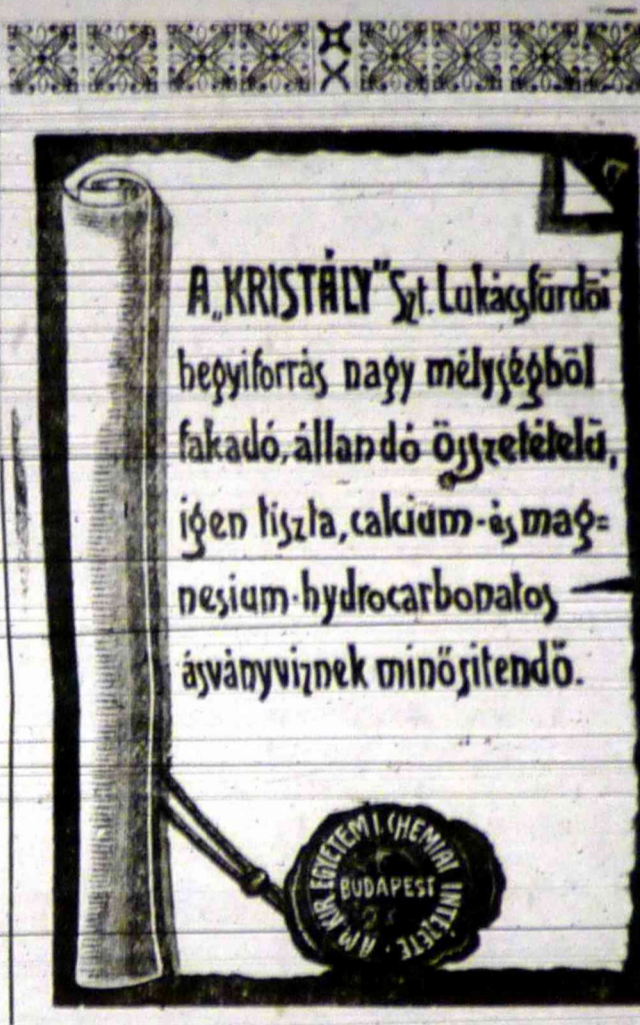 A „KRISTÁLY" Szt. Lukácsfürdői
hegyiforrás nagy mélységből
fakadó, állandó összetételű,
igen tiszta, calcium-és mag=
nesium-hydrocarbonatos
ásványviznek minősitendő.
A M. KIR. EGYETEM I. CHEMIAI INTÉZETE.
BUDAPEST